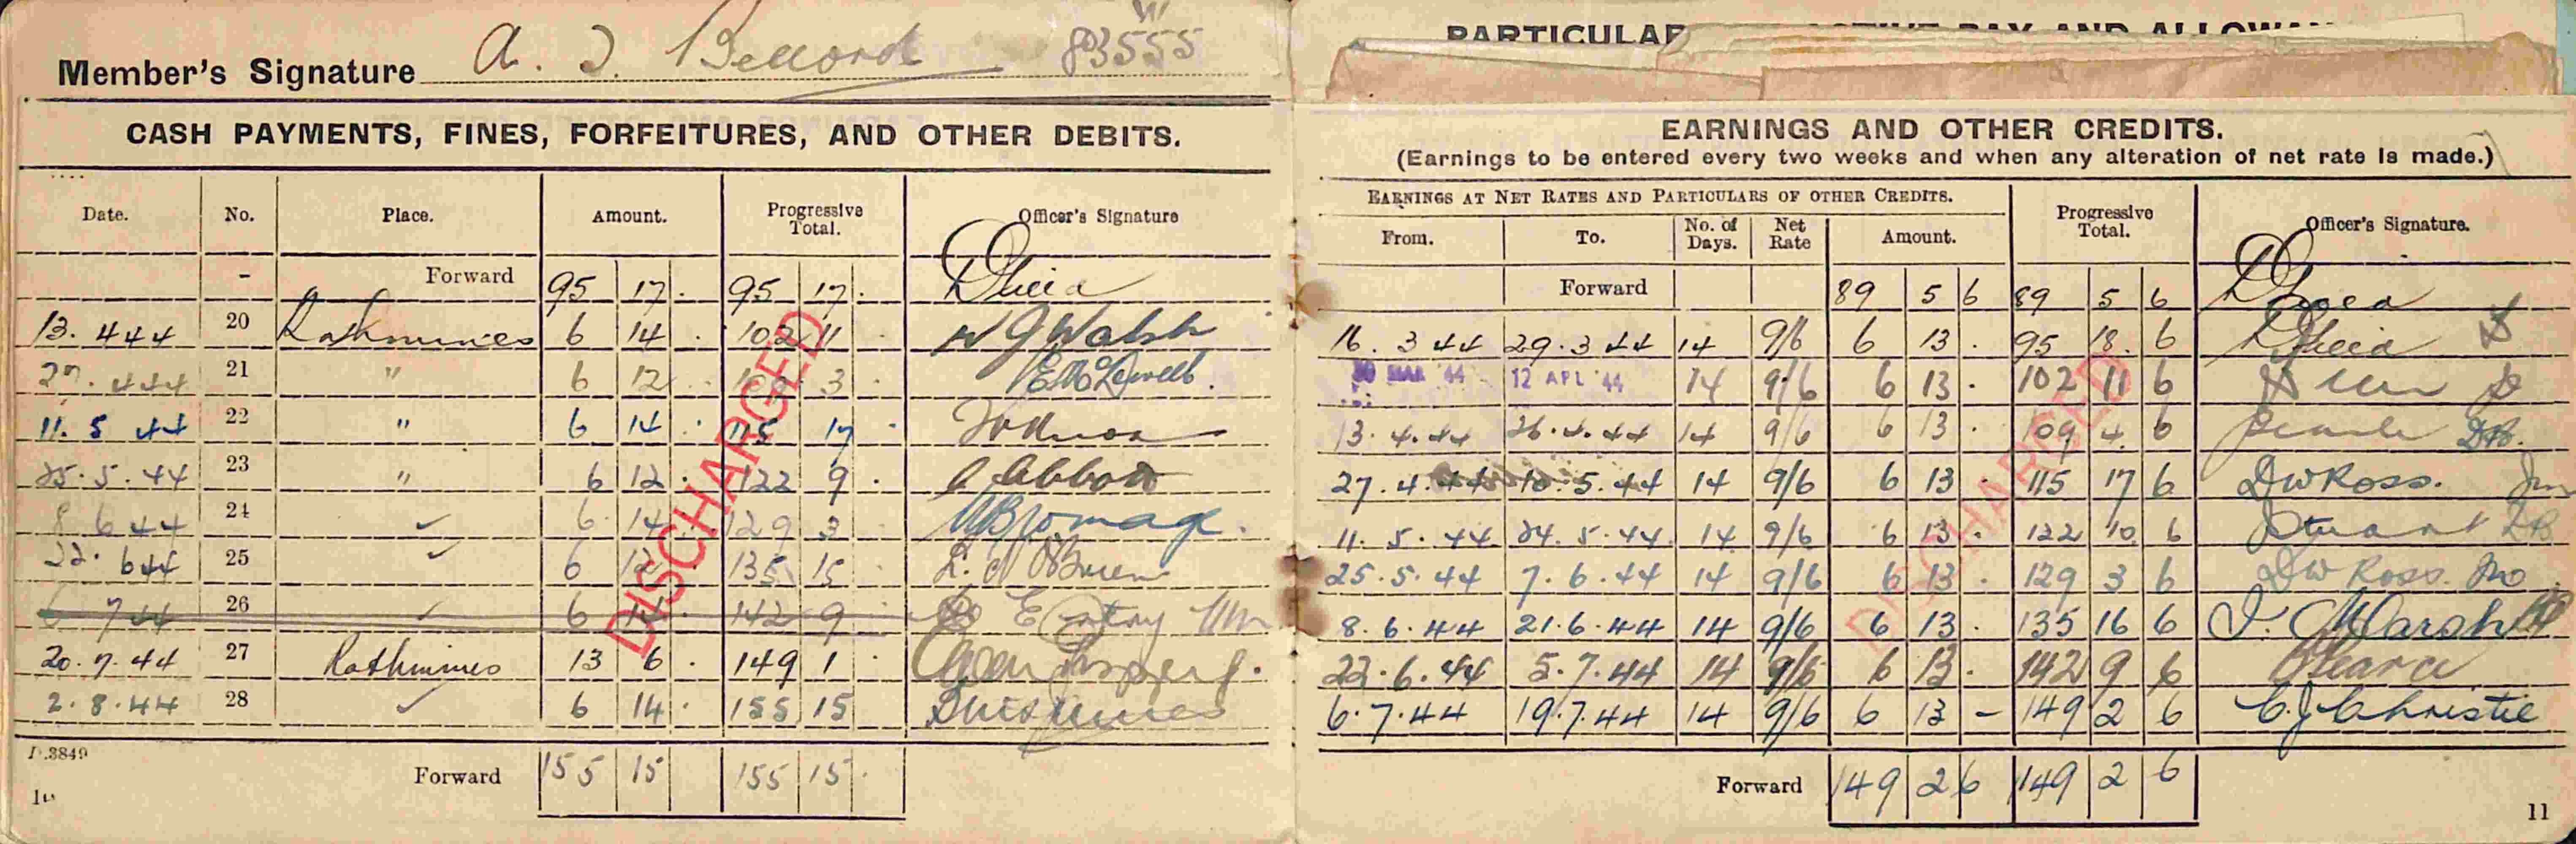 Member's Signature A. J. Bellord 83555
CASH PAYMENTS, FINES, FORFEITURES, AND OTHER DEBITS.
Date. No. Place. Amount. Progressive Total. Officer's Signature
- Forward 95 17 . 95 17 .
13. 4 44 20 Rathmines 6 14 . 102 11 . W J Walsh
27. 4 44 21 " 6 12 . 3 .
11. 5 44 22 " 6 14 . 115 17 .
25. 5. 44 23 " 6 12 . 122 9 . Abbott
8 6 44 24 ✓ 6 14 . 129 3 . Bromage.
22. 6 44 25 ✓ 6 12 135 15 O'Brien
6 7 44 26 ✓ 6 14 . 142 9 . No Entry
20. 7. 44 27 Rathmines 13 6 . 149 1 .
2. 8. 44 28 ✓ 6 14 . 155 15
DISCHARGED
D.3849
Forward 155 15 155 15 .
10
PARTICULAR
EARNINGS AND OTHER CREDITS.
(Earnings to be entered every two weeks and when any alteration of net rate is made.)
EARNINGS AT NET RATES AND PARTICULARS OF OTHER CREDITS.
From. To. No. of Days. Net Rate Amount. Progressive Total. Officer's Signature.
Forward 89 5 6 89 5 6
16. 3 44 29. 3 44 14 9/6 6 13 . 95 18. 6
30 MAR '44 12 APL '44 14 9/6 6 13 . 102 11 6
13. 4. 44 26. 4. 44 14 9/6 6 13 . 109 4. 6
27. 4. 44 10. 5. 44 14 9/6 6 13 . 115 17 6 D W Ross.
11. 5. 44 24. 5. 44. 14. 9/6 6 13 . 122 10. 6 Stuart
25. 5. 44 7. 6. 44 14 9/6 6 13 . 129 3 6 D W Ross.
8. 6. 44 21. 6. 44 14 9/6 6 13 . 135 16 6 Marsh
22. 6. 44 5. 7. 44 14 9/6 6 13 . 142 9 6
6. 7. 44 19. 7. 44 14 9/6 6 13 - 149 2 6 C. J. Christie
DISCHARGED
Forward 149 2 6 149 2 6
11